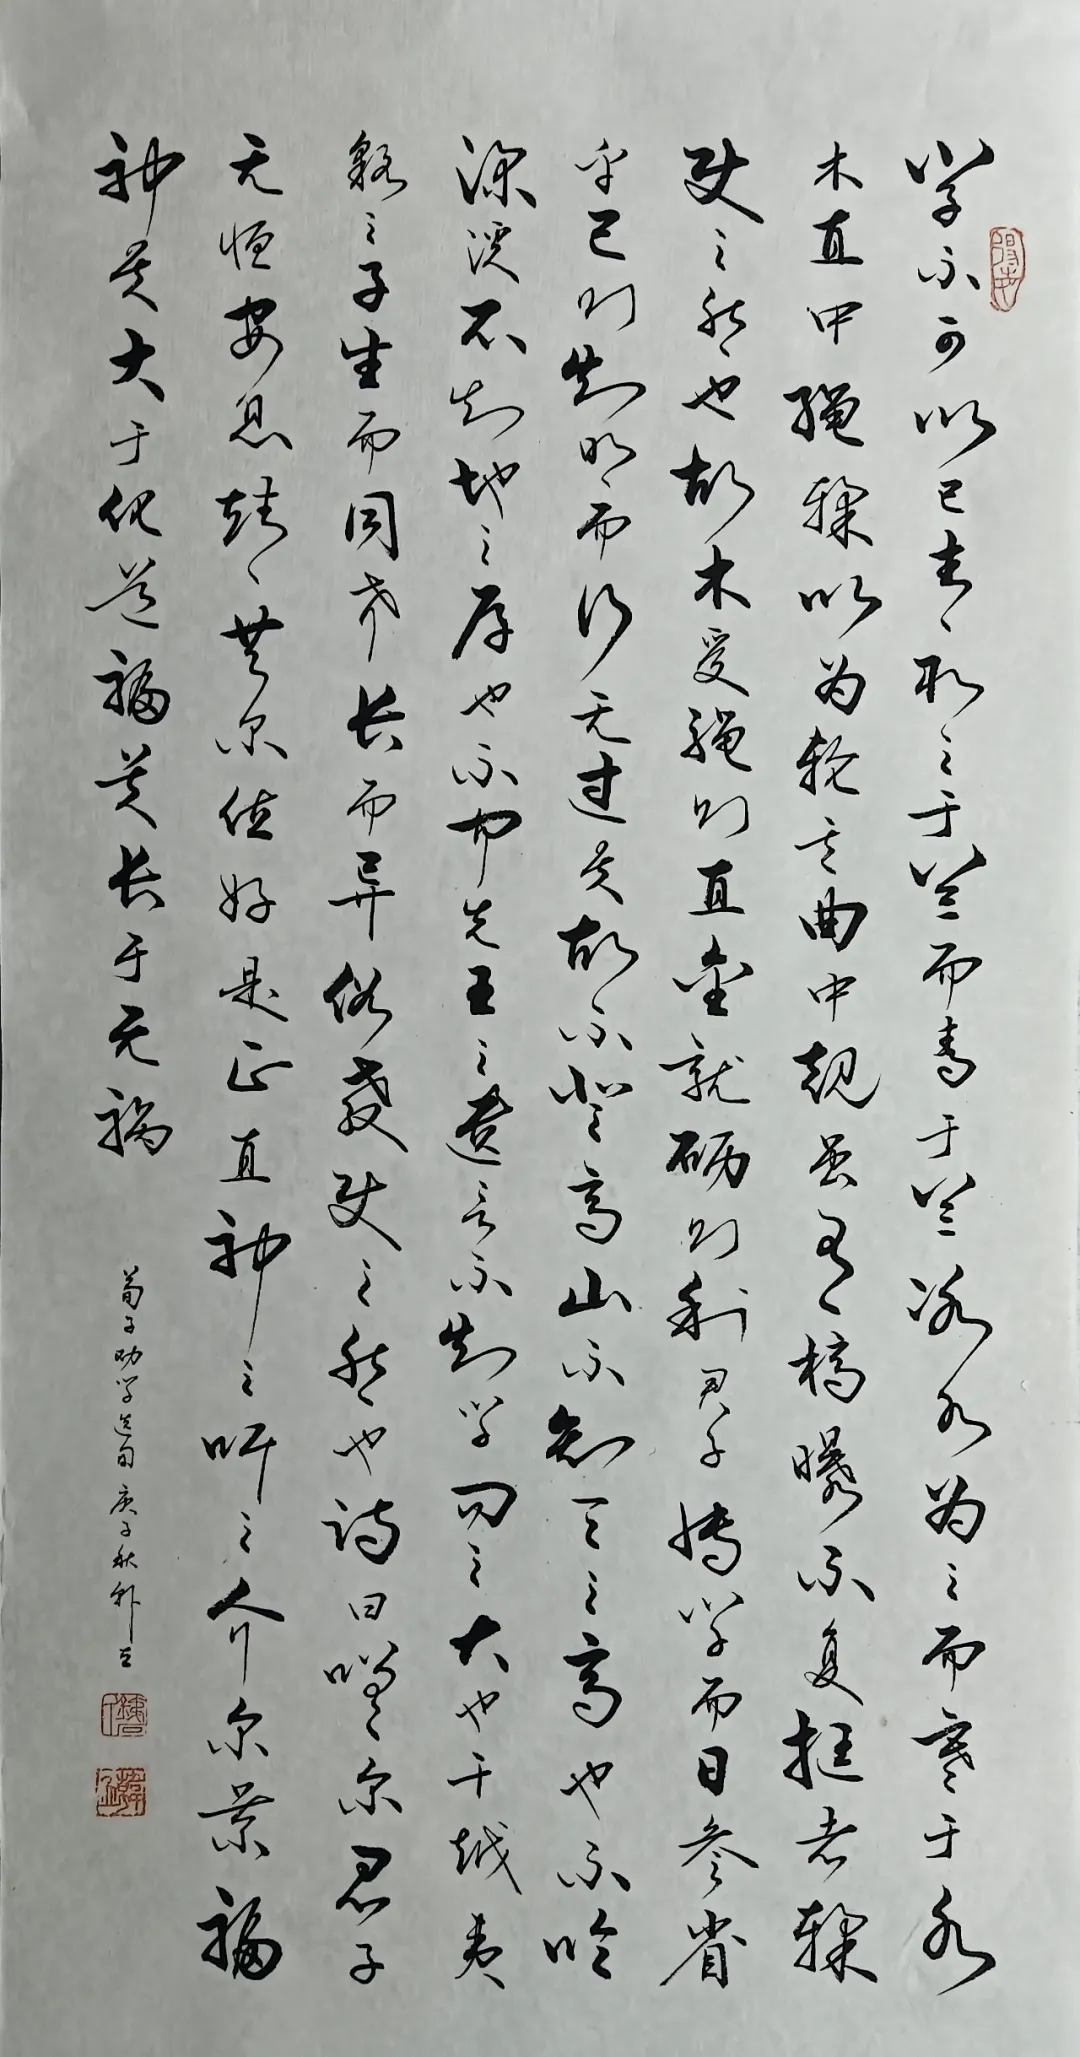 学不可以已青取之于兰而青于兰冰水为之而寒于水
木直中绳輮以为轮其曲中规虽有槁曝不复挺者輮
使之然也故木受绳则直金就砺则利君子博学而日参省
乎己则知明而行无过矣故不登高山不知天之高也不临
深溪不知地之厚也不闻先王之遗言不知学问之大也干越夷
貉之子生而同声长而异俗教使之然也诗曰嗟尔君子
无恒安息靖共尔位好是正直神之听之介尔景福
神莫大于化道福莫长于无祸
荀子劝学选句庚子秋